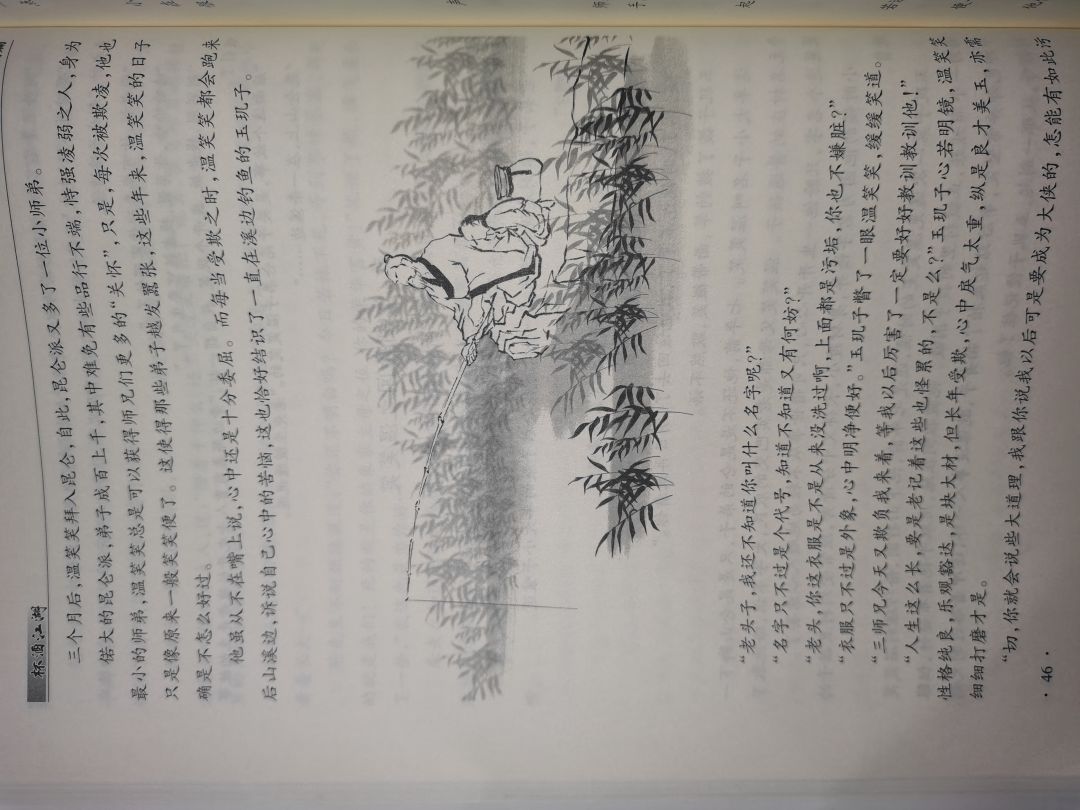 杯酒江湖
三个月后，温笑笑拜入昆仑，自此，昆仑派又多了一位小师弟。
偌大的昆仑派，弟子成百上千，其中难免有些品行不端，恃强凌弱之人，身为
最小的师弟，温笑笑总是可以获得师兄们更多的“关怀”，只是，每次被欺凌，他也
只是像原来一般笑笑便了。这使得那些弟子越发嚣张，这些年来，温笑笑的日子
确是不怎么好过。
他虽从不在嘴上说，心中还是十分委屈。而每当受欺之时，温笑笑都会跑来
后山溪边，诉说自己心中的苦恼，这也恰好结识了一直在溪边钓鱼的玉玑子。
“老头子，我还不知道你叫什么名字呢？”
“名字只不过是个代号，知道不知道又有何妨？”
“老头，你这衣服是不是从来没洗过啊，上面都是污垢，你也不嫌脏？”
“衣服只不过是外象，心中明净便好。”玉玑子瞥了一眼温笑笑，缓缓笑道。
“三师兄今天又欺负我来着，等我以后厉害了一定要好好教训教训他！”
“人生这么长，要是老记着这些也怪累的，不是么？”玉玑子心若明镜，温笑笑
性格纯良，乐观豁达，是块大材，但长年受欺，心中戾气太重，纵是良才美玉，亦需
细细打磨才是。
“切，你就会说些大道理，我跟你说我以后可是要成为大侠的，怎能有如此污
· 46 ·